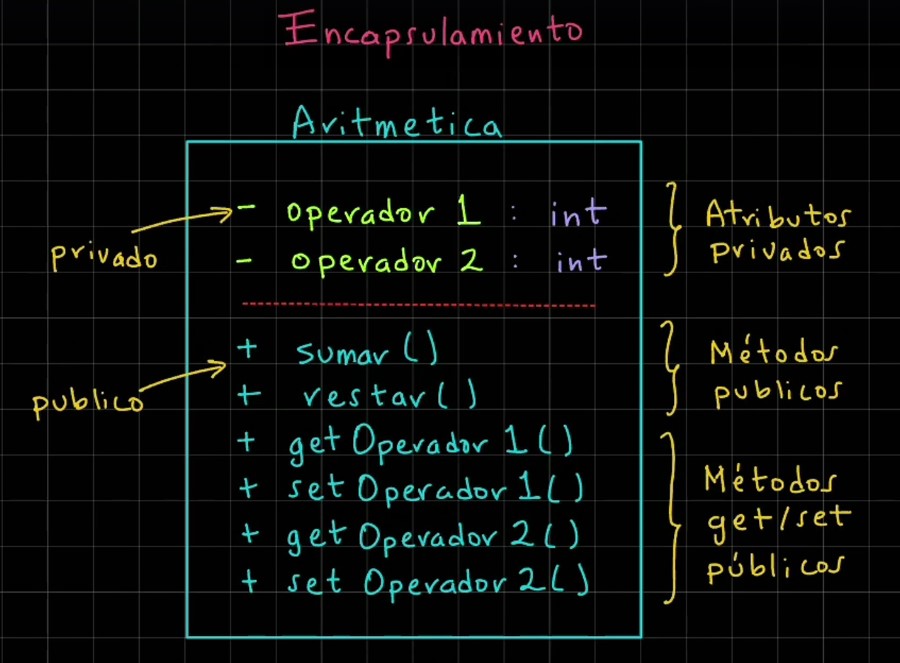 Encapsulamiento
Aritmetica
- operador 1 : int
- operador 2 : int
privado
Atributos
privados
+ sumar ()
+ restar ()
publico
Métodos
publicos
+ get Operador 1 ()
+ set Operador 1 ()
+ get Operador 2 ()
+ set Operador 2 ()
Métodos
get/set
públicos